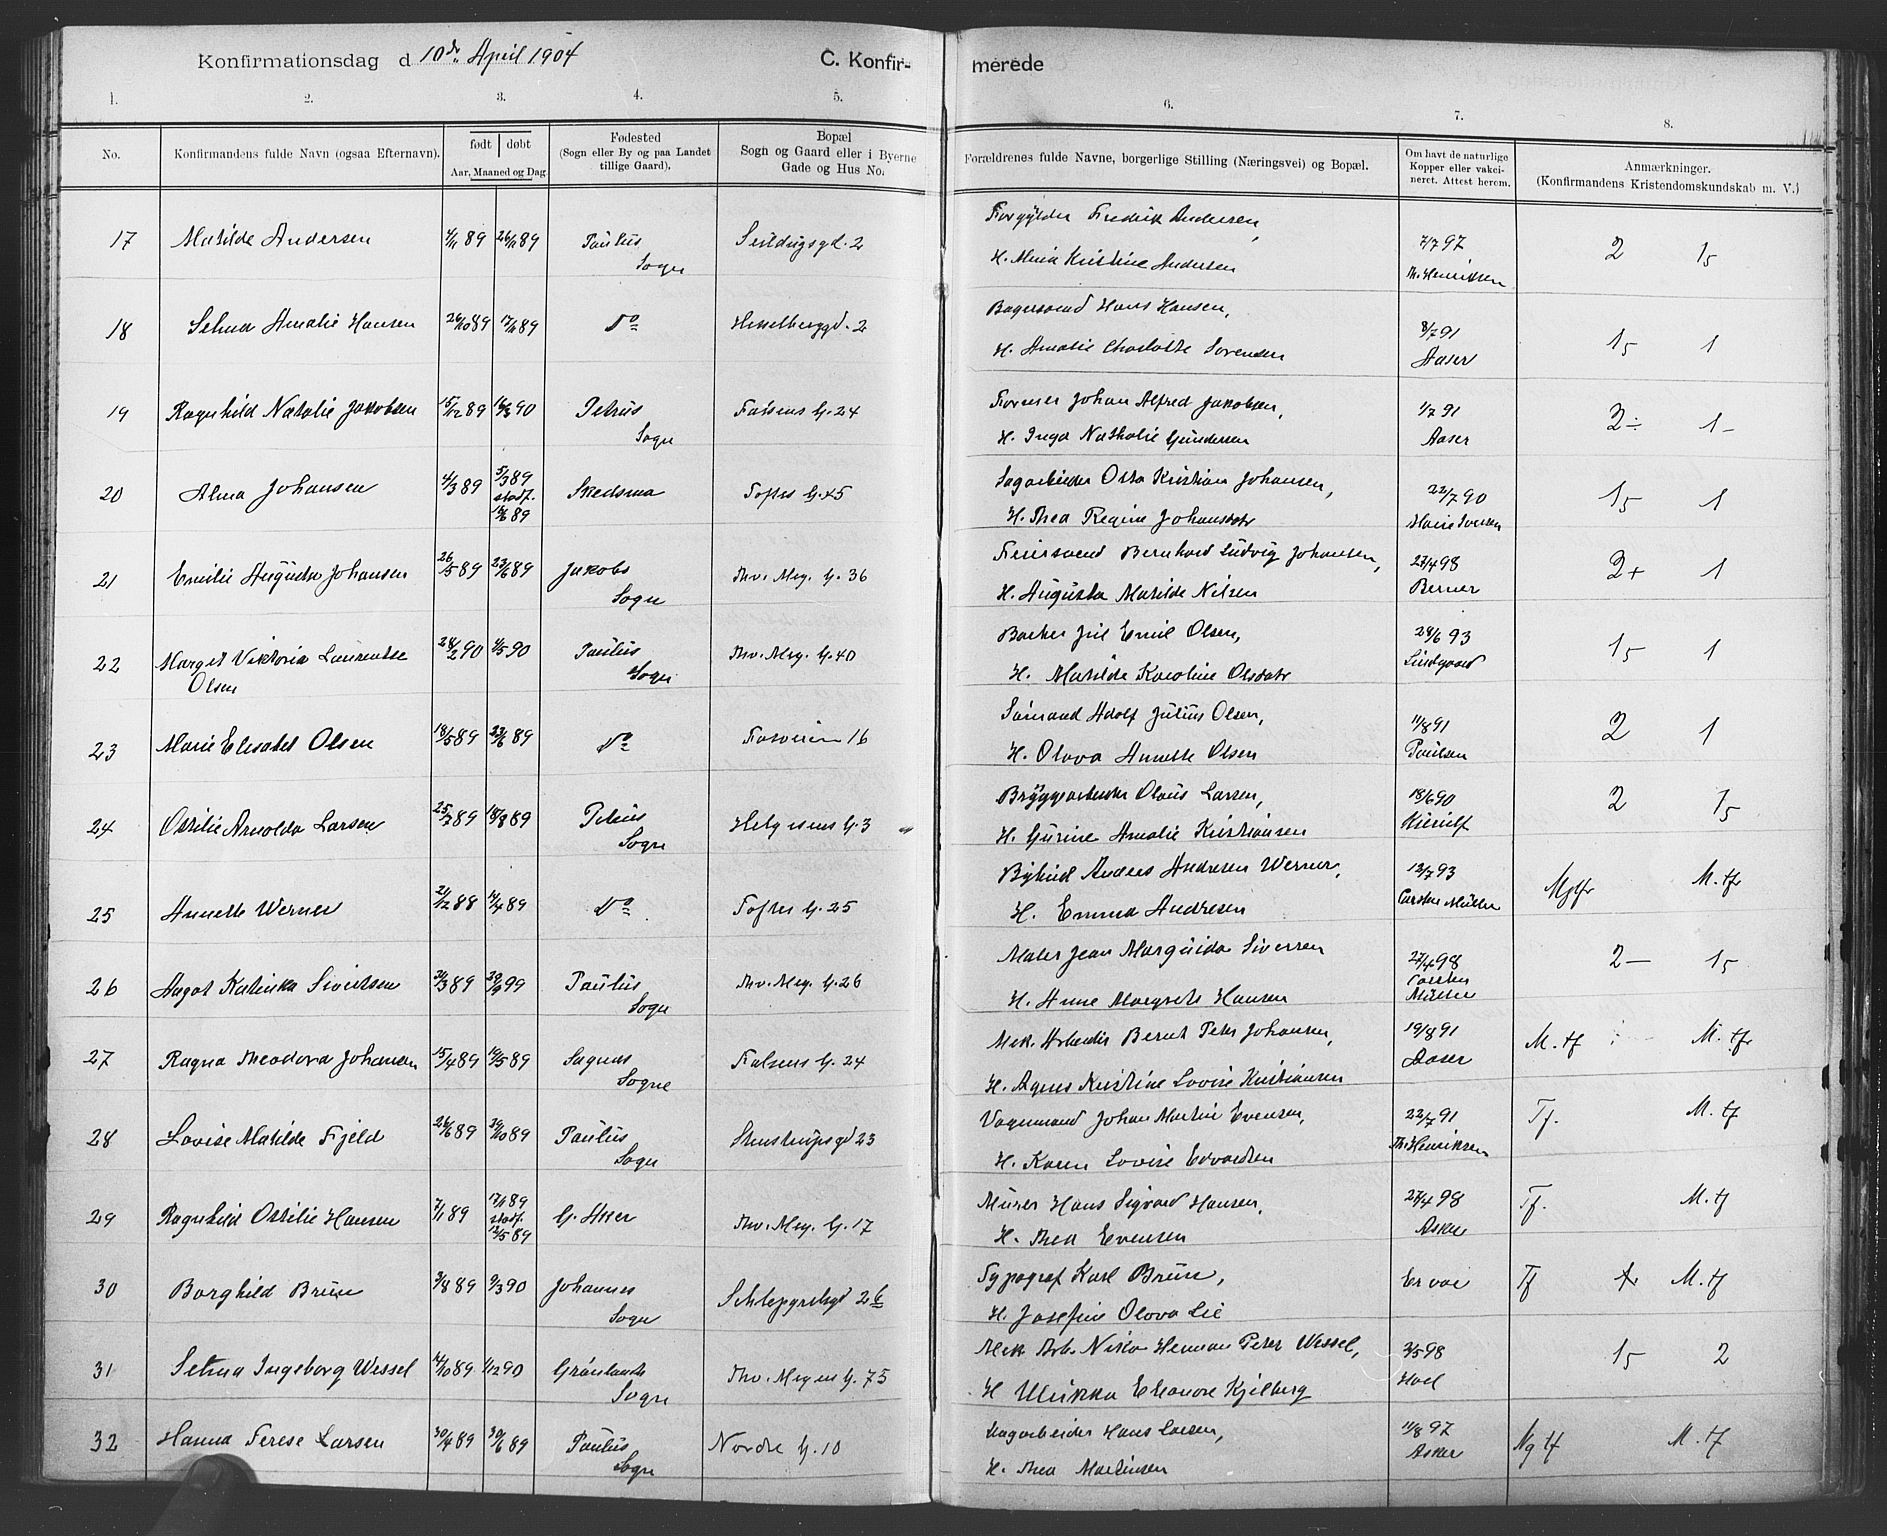 Konfirmationsdag d 10de April 1904
C. Konfirmerede
1. 2. 3. 4. 5. 6. 7. 8.
No.
Konfirmandens fulde Navn (ogsaa Efternavn).
født døbt
Aar, Maaned og Dag
Fødested
(Sogn eller By og paa Landet
tillige Gaard).
Bopæl
Sogn og Gaard eller i Byerne
Gade og Hus No.
Forældrenes fulde Navne, borgerlige Stilling (Næringsvei) og Bopæl.
Om havt de naturlige
Kopper eller vakci-
neret. Attest herom.
Anmærkninger.
(Konfirmandens Kristendomskundskab m. V.)
17 Matilde Andersen 89 26/11 89 Paulus Sogn Seildugsgd. 2
Forgylder Fredrik Andersen,
H. Kristine Andersen
7/7 97 Th. Henriksen
2 15
18 Selma Amalie Hansen 26/10 89 17/11 89 Do Hesselberggd. 2
Bagersvend Hans Hansen,
H. Amalie Charlotte Sorensen
8/7 91 Aaser
15 1
19 Ragnhild Natalie Jakobsen 15/12 89 16/3 90 Petrus Sogn Fossens G. 24
Former Johan Alfred Jakobsen,
H. Inga Nathalie Gundersen
1/7 91 Aaser
2÷ 1-
20 Alma Johansen 4/3 89 5/3 89 stadf. 16/6 89 Skedsmo Toftes G. 45
Sagarbeider Otto Kristian Johansen,
H. Thea Regine Johansdtr
22/7 90
15 1
21 Emilie Augusta Johansen 26/5 89 23/6 89 Jakobs Sogn Thv. Mey. G. 36
Bernhard Ludvig Johansen,
H. Augusta Matilde Nilsen
27/4 98 Berner
2+ 1
22 Marget Viktoria Laurentse Olsen 28/2 90 4/5 90 Paulus Sogn Thv. Mey. G. 40
Juil Emil Olsen,
H. Matilde Karoline Olsdatr
28/6 93 Lindgaard
15 1
23 Marie Elisabet Olsen 18/5 89 23/6 89 Do Fosveien 16
Sømand Adolf Julius Olsen,
H. Olava Annette Olsen
11/8 91 Paulsen
2 1
24 Ottilie Arnolda Larsen 25/7 89 18/8 89 Petrus Sogn Helgesens G. 3
Bryggearbeider Olaus Larsen,
H. Gurine Amalie Kristiansen
18/6 90 Kierulf
2 15
25 Annette Werner 21/12 88 14/4 89 Do Toftes G. 25
Bybud Anders Andresen Werner,
H. Emma Andresen
12/7 93 Carsten Müller
Mgtfr M. tfr
26 Aagot Katinka Sivertsen 31/3 89 29/9 99 Paulus Sogn Thv. Mey. G. 26
Maler Jean Marquida Siversen
H. Anne Margrete Hansen
27/4 98 Carsten Müller
2- 15
27 Ragna Theodora Johansen 15/4 89 19/5 89 Sagnes Sogne Falsens G. 24
Mek. Arbeider Bernt Peter Johansen,
H. Agnes Kristine Lovise Kristiansen
19/8 91 Aaser
M. tf M. tfr
28 Lovise Matilde Fjeld 26/6 89 29/10 89 Paulus Sogn Stenstrupsgd 23
Vognmand Johan Martin Evensen,
H. Karen Lovise Edvardsen
22/7 91 Th. Henriksen
Tf. M. tf
29 Ragnhild Ottilie Hansen 7/1 89 17/1 89 stadf. 12/5 89 G. Aker Thv. Mey. G. 17
Murer Hans Sigvard Hansen,
H. Thea Evensen
27/4 98 Asker
Tf. M. tf
30 Borghild Bruun 3/8 89 9/3 90 Johannes Sogn Schleppegrelsgd 26
Typograf Karl Bruun,
H. Josefine Olava Lie
Er vac
Tf M. tf
31 Selma Ingeborg Wessel 89 1/12 90 Grønlands Sogn Thv. Meyens G. 75
Mek Arb. Herman Peter Wessel,
H Ulrikka Eleonore Kjelberg
3/5 98 Hoel
15 2
32 Hanna Terese Larsen 30/4 89 30/6 89 Paulus Sogn Nordre G. 10
Sagarbeider Hans Larsen,
H. Thea Martinsen
11/8 97 Asker
Ng tf M. tf